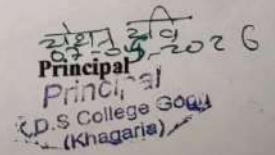 07-05-2026
Principal
Principal
K.D.S College Gogri
(Khagaria)